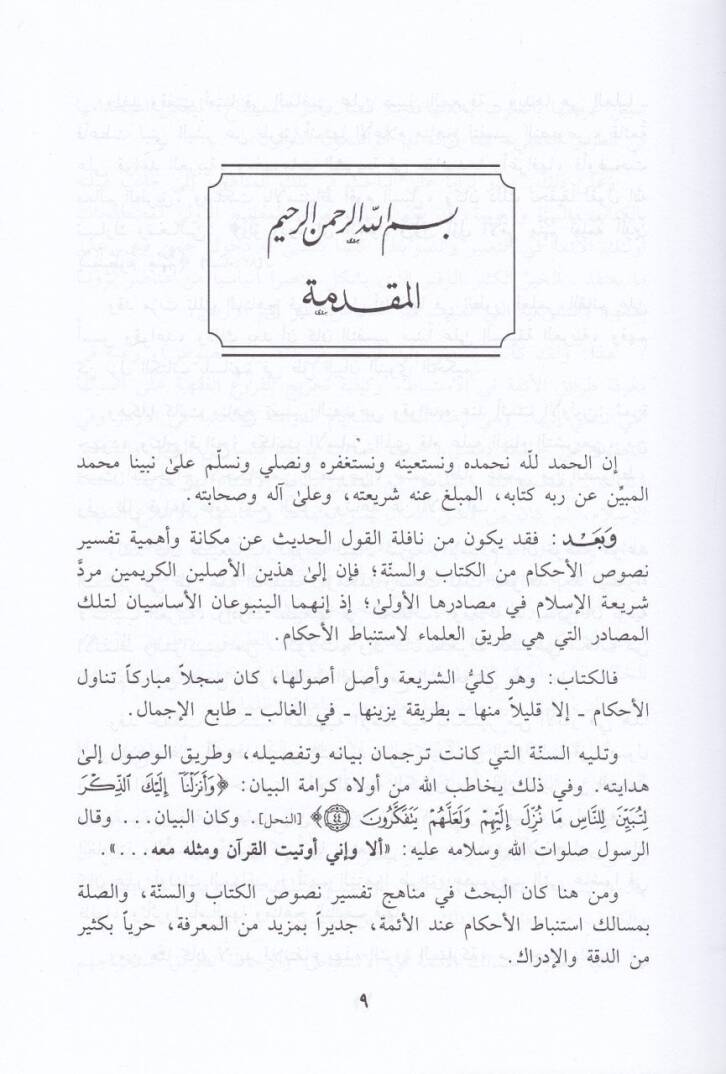 بسم الله الرحمن الرحيم
المقدمة
إن الحمد للّه نحمده ونستعينه ونستغفره ونصلي ونسلّم علىٰ نبينا محمد
المبيّن عن ربه كتابه، المبلغ عنه شريعته، وعلىٰ آله وصحابته.
وَبَعَـْد : فقد يكون من نافلة القول الحديث عن مكانة وأهمية تفسير
نصوص الأحكام من الكتاب والسنّة؛ فإن إلىٰ هذين الأصلين الكريمين مردَّ
شريعة الإسلام في مصادرها الأولىٰ؛ إذ إنهما الينبوعان الأساسيان لتلك
المصادر التي هي طريق العلماء لاستنباط الأحكام.
فالكتاب: وهو كليُّ الشريعة وأصل أصولها، كان سجلاً مباركاً تناول
الأحكام ـ إلا قليلاً منها ـ بطريقة يزينها ـ في الغالب ـ طابع الإجمال.
وتليه السنّة التي كانت ترجمان بيانه وتفصيله، وطريق الوصول إلىٰ
هدايته. وفي ذلك يخاطب الله من أولاه كرامة البيان: ﴿وَأَنزَلْنَآ إِلَيْكَ ٱلذِّكْرَ
لِتُبَيِّنَ لِلنَّاسِ مَا نُزِّلَ إِلَيْهِمْ وَلَعَلَّهُمْ يَتَفَكَّرُونَ ٤٤﴾ [النحل]. وكان البيان... وقال
الرسول صلوات الله وسلامه عليه: «ألا وإني أوتيت القرآن ومثله معه...».
ومن هنا كان البحث في مناهج تفسير نصوص الكتاب والسنّة، والصلة
بمسالك استنباط الأحكام عند الأئمة، جديراً بمزيد من المعرفة، حرياً بكثير
من الدقة والإدراك.
٩